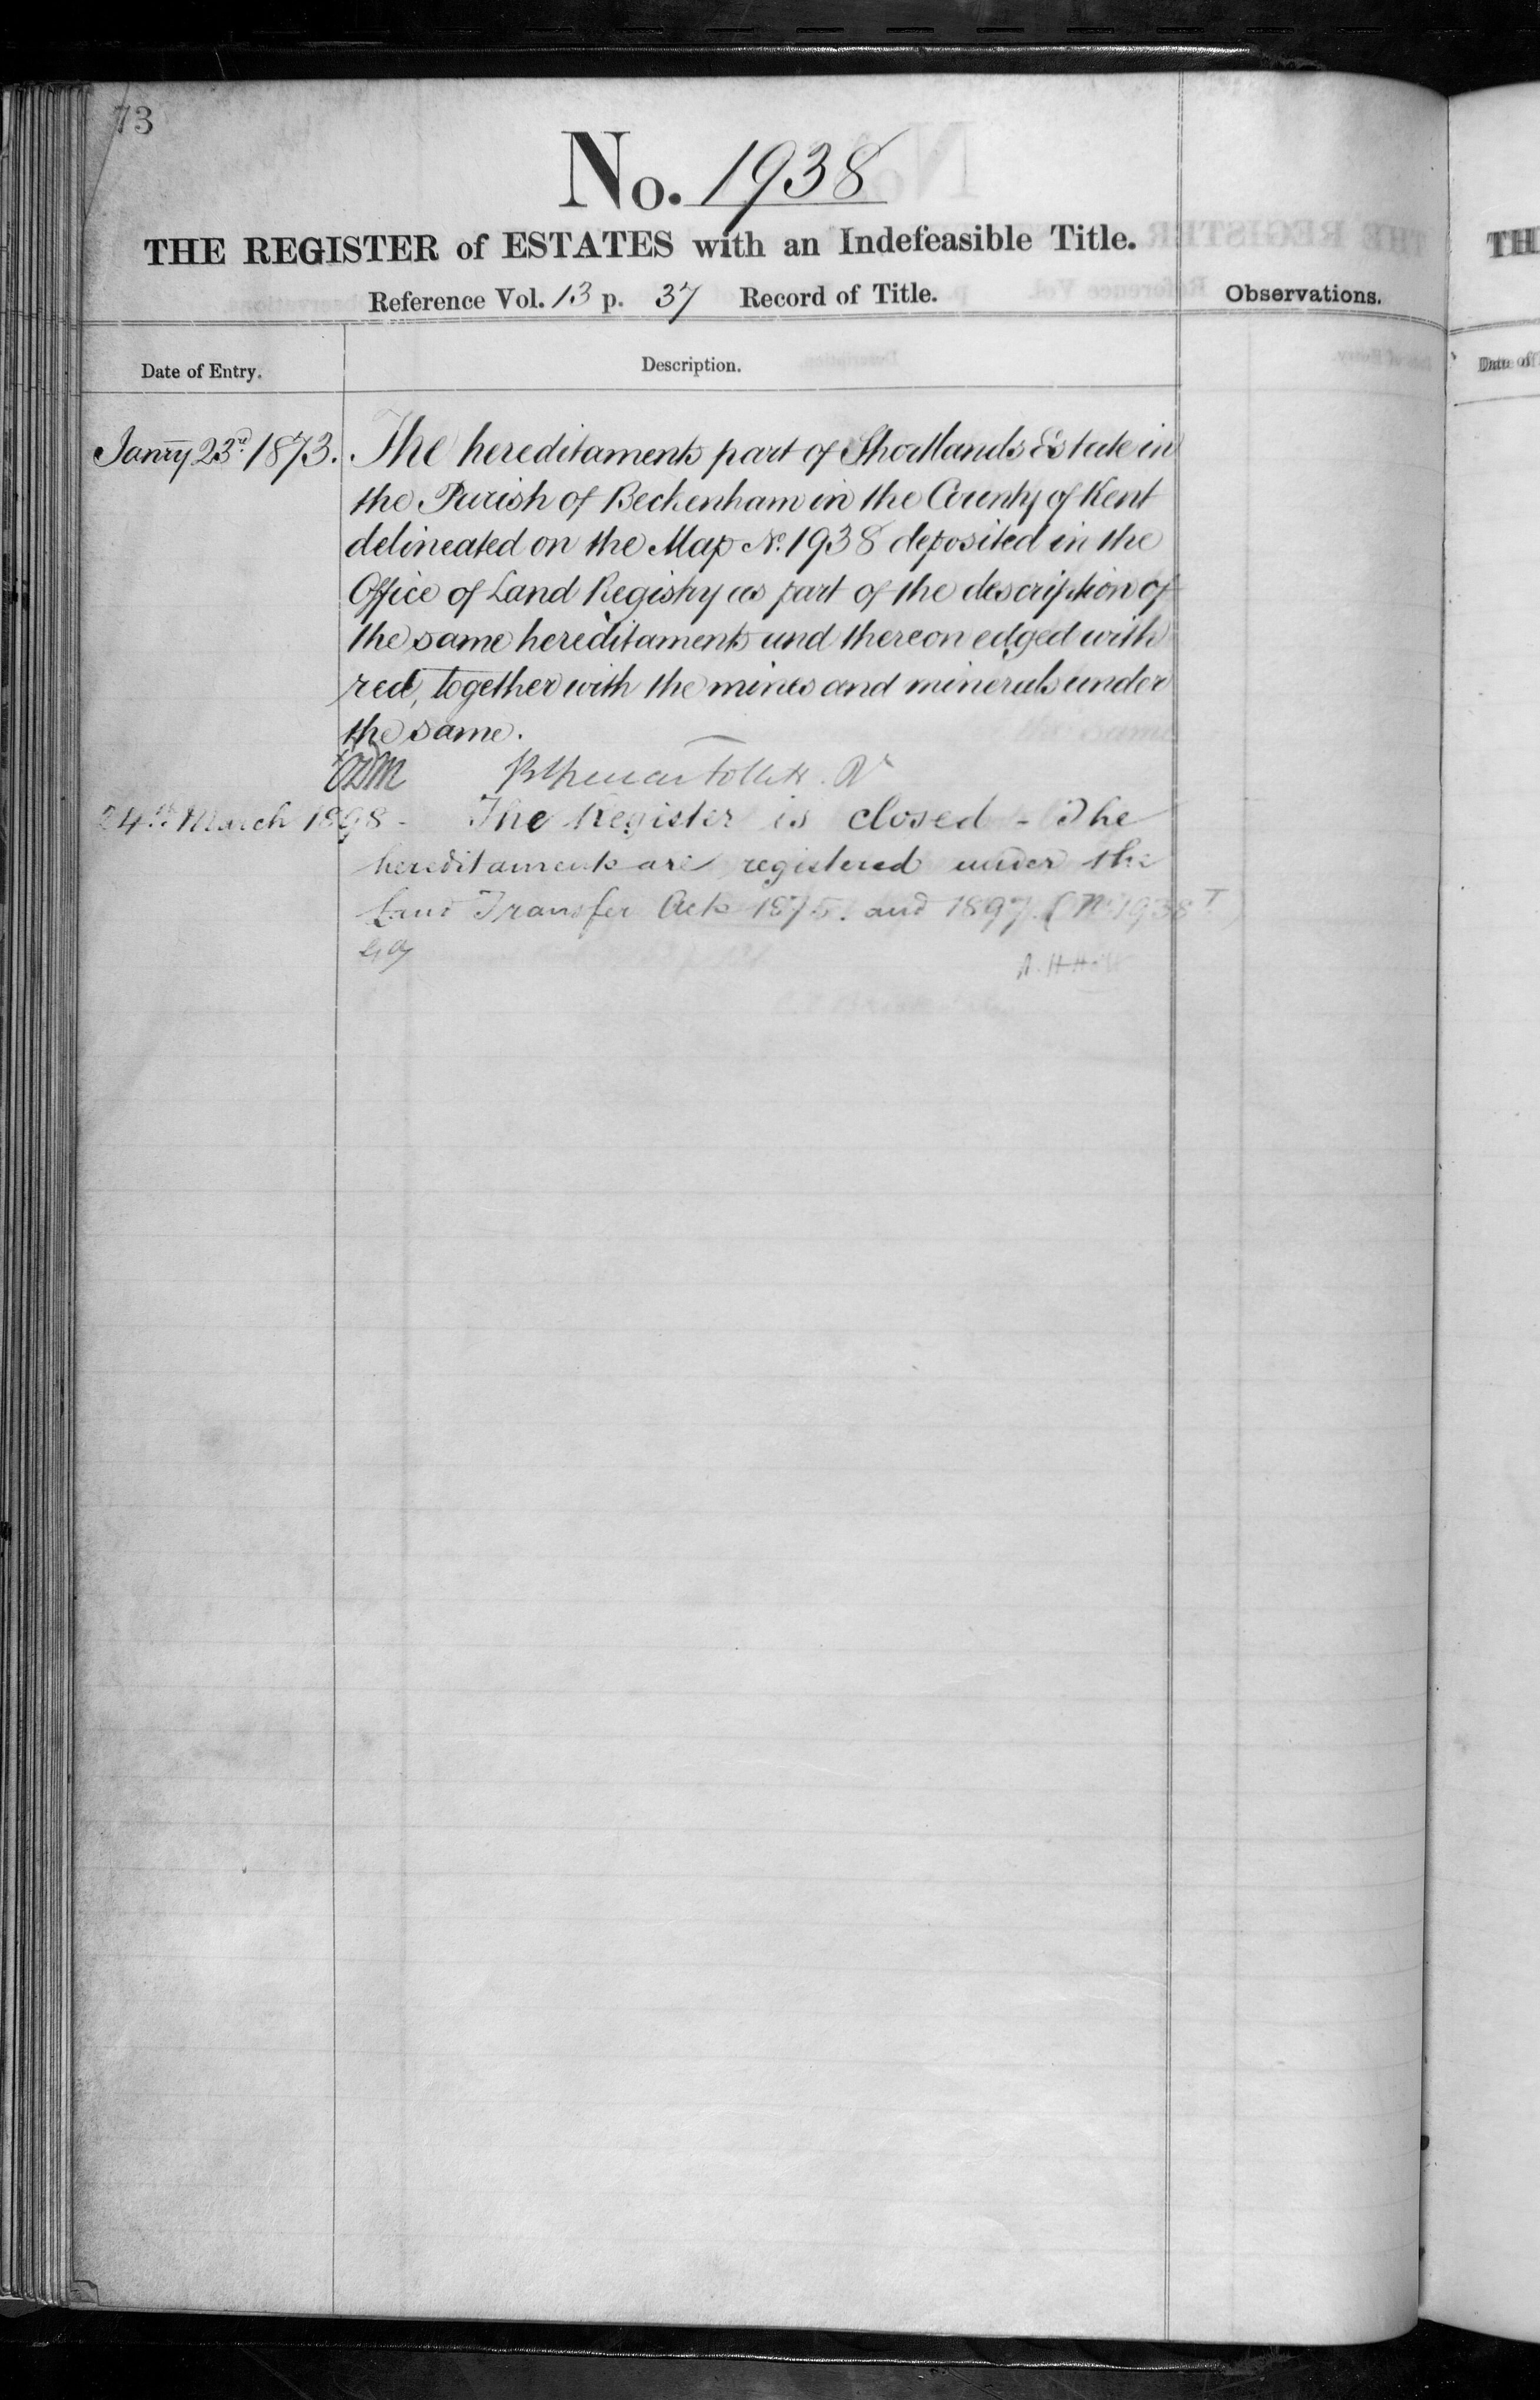 73
No. 1938
THE REGISTER of ESTATES with an Indefeasible Title.
Reference Vol. 13 p. 37 Record of Title.
Observations.
Date of Entry.
Description.
Janry 23rd 1873. The hereditaments part of Shortlands Estate in
the Parish of Beckenham in the County of Kent
delineated on the Map No. 1938 deposited in the
Office of Land Registry as part of the description of
the same hereditaments and thereon edged with
red, together with the mines and minerals under
the same.
24th March 1898 - The Register is closed - The
hereditaments are registered under the
Land Transfer Acts 1875. and 1897 (No 1938 T)
TH
Date of